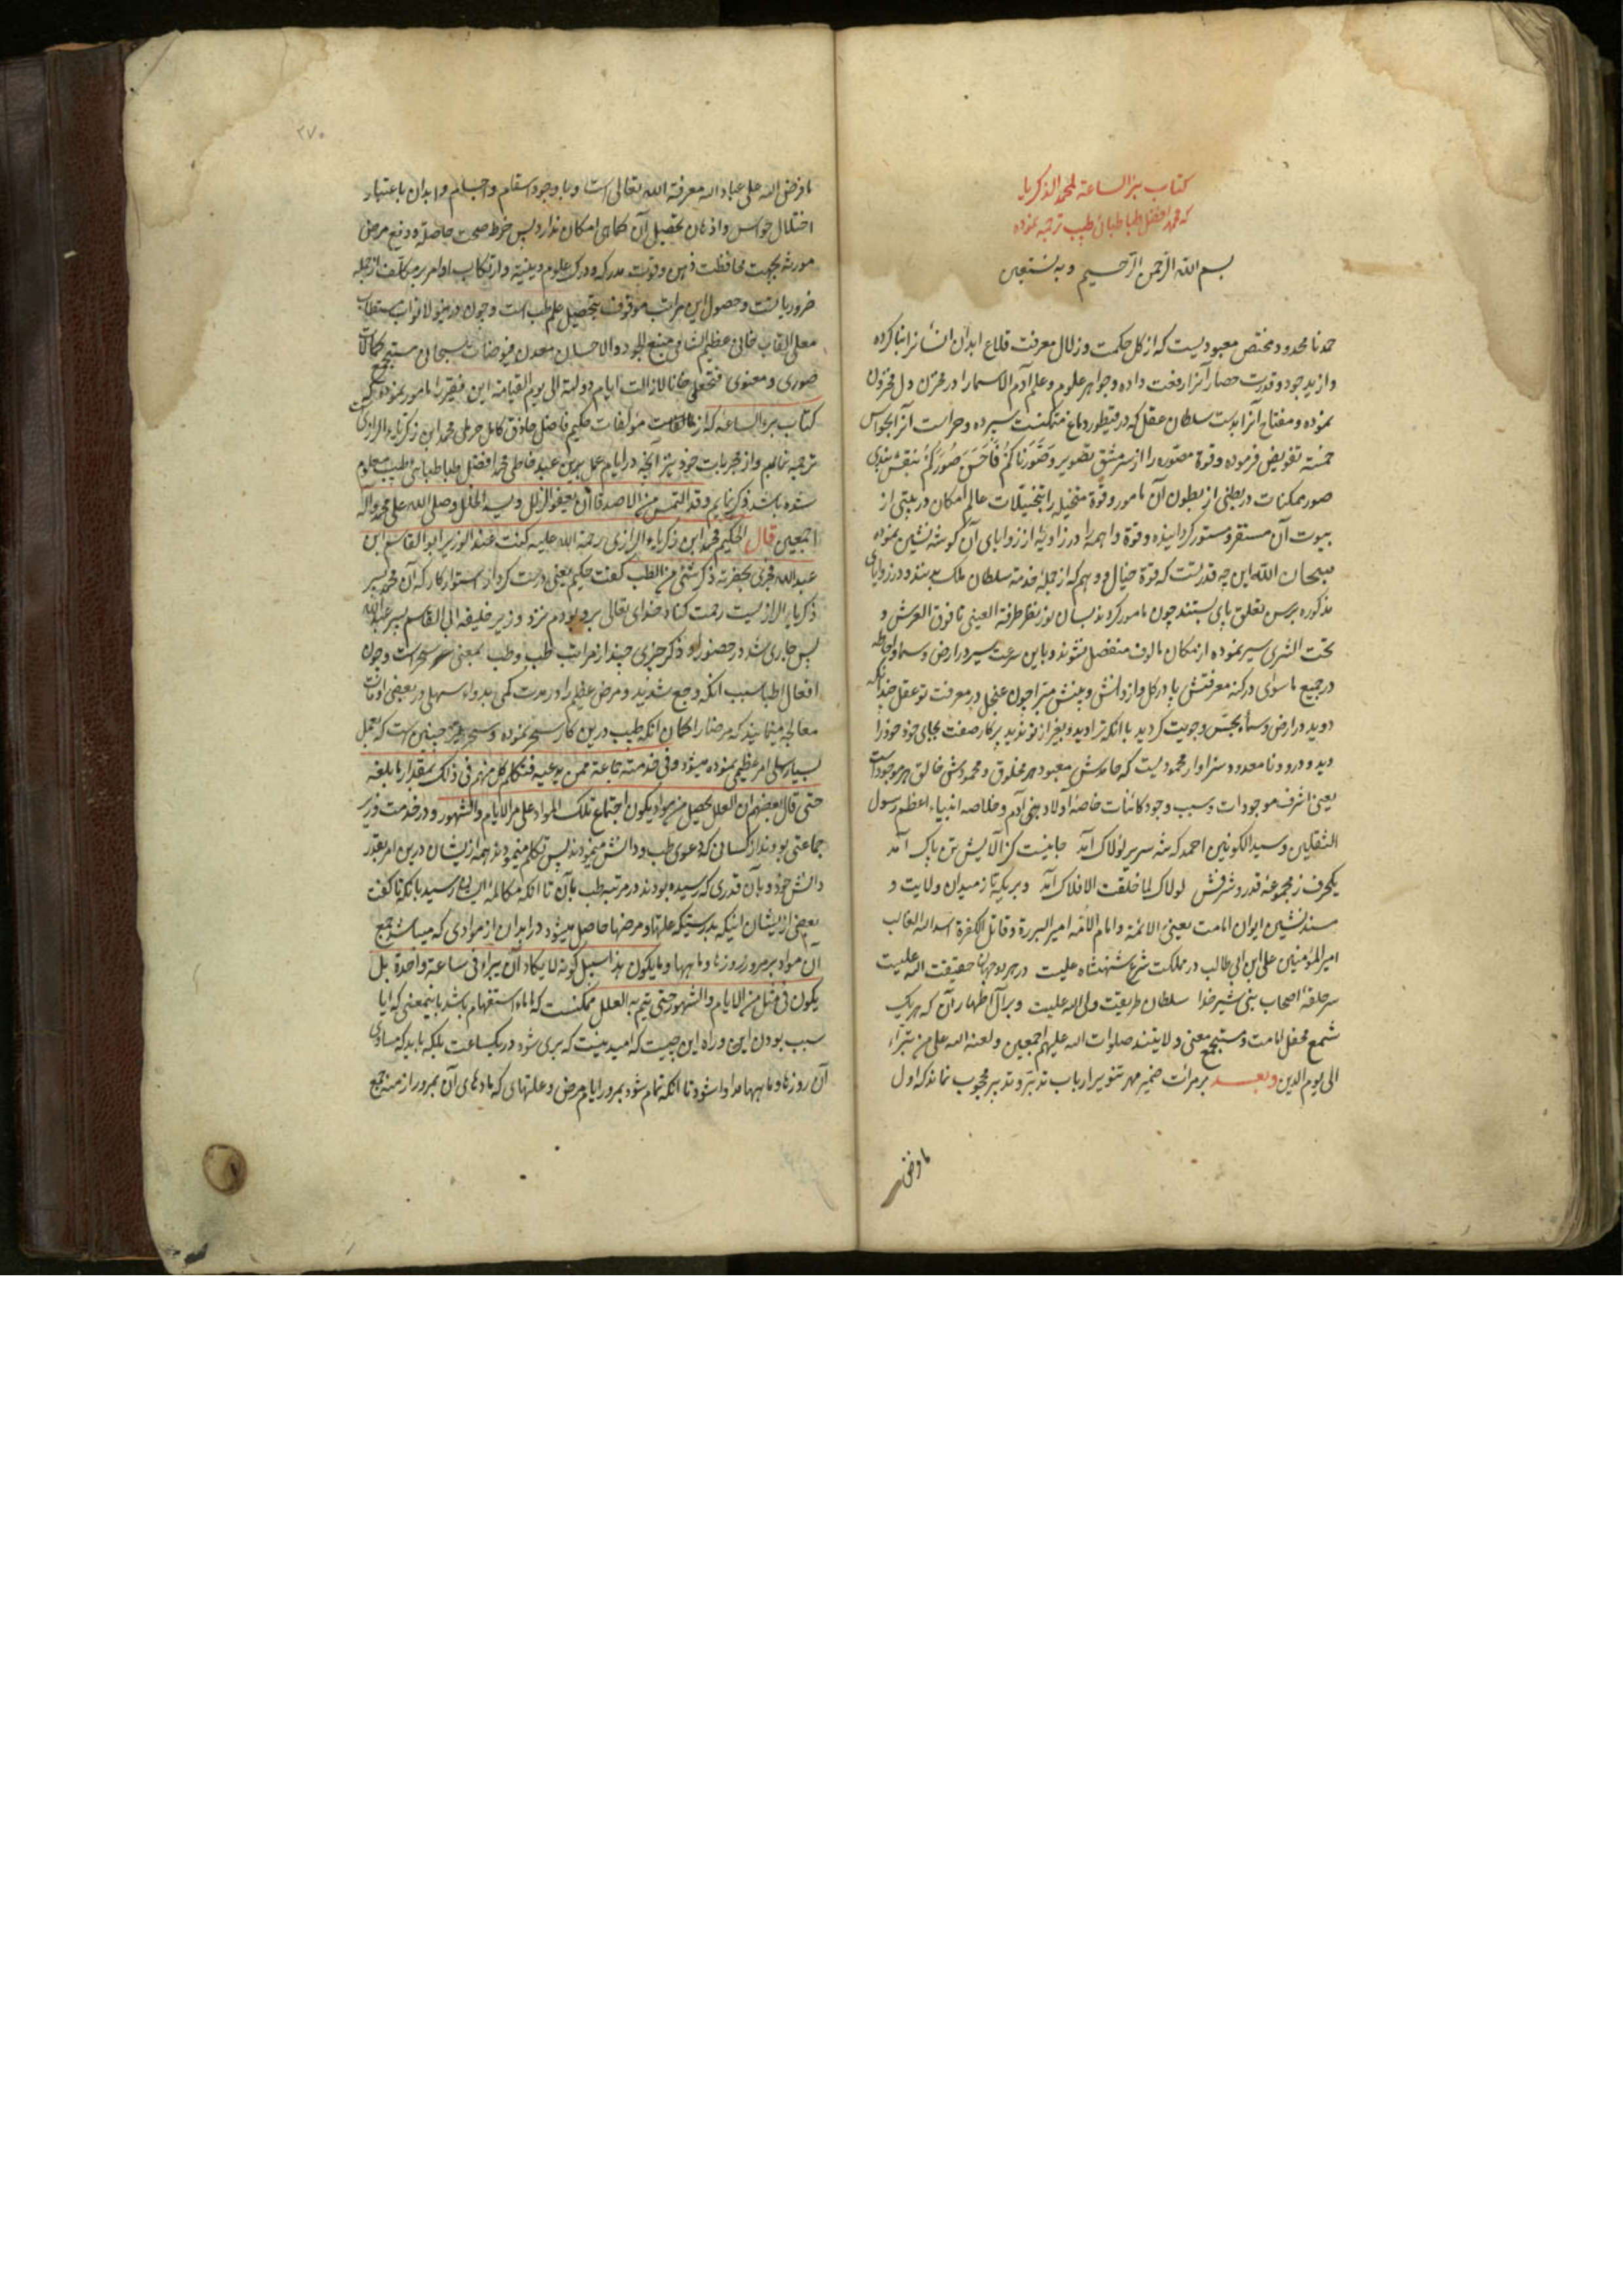 کتاب برالساعة لمحمد الذکریا
که محمد افضل طباطبائی طبیب ترجمه نموده
بسم الله الرحمن الرحیم و به نستعین
حمد نا محدود مختص معبودیست که از کل حکمت و زلال معرفت قلاع ابدان انسانرا بنا کرده
و از ید جود و قدرت حصار آنرا رفعت داده و جواهر علوم و علم آدم الاسماء را در مخزن دل مخزون
نموده و مفتاح آنرا بدست سلطان عقل که در دماغ متمکنست سپرده و حراست آنرا بحواس
خمسه تفویض فرموده و قوة مصوره را از سرمشق تصویر وَصَوَّرَکُم فَاَحسَنَ صُوَرَکُم بنقش بندی
صور ممکنات در بطنی از بطون آن مامور و قوة متخیله را بتخیلات عالم امکان در بیتی از
بیوت آن مستقر و مستور گردانیده و قوة واهمه را در زاویهٔ از زوایای آن گوشه نشین نموده
سبحان الله این چه قدرتست که قوة خیال و وهم که از جملهٔ خدمهٔ سلطان ملک بدنند و در زوایای
مذکوره برسن تعلق پای بستند چون مامور گردند بسان نور نظر طرفة العینی تا فوق العرش و
تحت الثری سیر نموده از مکان مالوف منفصل نشوند و باین سرعت سیر در ارض و سما و احاطه
در جمیع ماسوای در کنه معرفتش پا در گل و از دانش و بینش مبرا چون خجل در معرفت تو عقل خدا آنکه
دوید در ارض و سما بجست و جویت گردید با آنکه ترا دید و بغیر از تو ندید پرکار صفت بجای خود خود را
دید و درود نامعدود سزاوار محمودیست که حامدش معبود هر مخلوق و محمودش خالق هر موجودات
یعنی اشرف موجودات و سبب وجود کائنات خاصهٔ اولاد بنی آدم و خلاصه انبیاء اعظم رسول
الثقلین و سید الکونین احمد که شه سریر لولاک آمد جانیست کز آلایش تن پاک آمد
یکحرف ز مجموعهٔ قدر و شرفش لولاک لما خلقت الافلاک آمد و بر یکه تاز میدان ولایت و
مسند نشین ایوان امامت یعنی الائمة و امام الائمه امیر البررة و قاتل الکفرة اسد الله الغالب
امیر المؤمنین علی ابن ابی طالب در مملکت شرع شهنشاه علیست در هر دو جهان حقیقت الله علیست
سر حلقهٔ اصحاب نبی شیر خدا سلطان طریقت ولی الله علیست و بر آل اطهار آن که هر یک
شمع محفل امامت و مستجمع معنی ولایتند صلوات الله علیهم اجمعین و لعنة الله علی من تبراء
الی یوم الدین و بعد بر مرآت ضمیر مهر تنویر ارباب تدبر و تدبیر محجوب نماند که اول
ما فرض
۲۷۰
ما فرض الله علی عباد الله معرفة الله تعالی است و با وجود اسقام و اجسام و ابدان باعتبار
اختلال حواس و اذهان تحصیل آن کماهی امکان ندارد پس حفظ صحت حاصله و دفع مرض
مورثه بجهت محافظت ذهن و قوت مدرکه و درک علوم دینیه و ارتکاب اوامر بر مکلف از جمله
ضروریاتست و حصول این مراتب موقوف بتحصیل علم طب است و چون درینولا نواب مستطاب
معلی القاب خانی عظیم الشانی منبع الجود والاحسان معدن فیوضات سبحانی مستجمع کمالات
صوری و معنوی فتحعلی خانا لازالت ایام دولته الی یوم القیامة این فقیر را مامور نمودند که
کتاب برء الساعة که از مؤلفات حکیم فاضل حاذق کامل محمد ابن زکریاء الرازیست
ترجمه نمایم و از مجربات خود نیز آنچه در ایام عمل برین عبد خاطی محمد افضل طباطبایی طبیب معلوم
شده باشد ذکر نمایم و قد التمس من الاصدقا ان یعفو الزلل و یسد الخلل و صلی الله علی محمد و آله
اجمعین قال الحکیم محمد ابن زکریاء الرازی رحمة الله علیه کنت عند الوزیر ابو القاسم ابن
عبد الله فجری بحضرته ذکر شئی من الطب گفت حکیم یعنی درست کردار استوار کار که آن محمد پسر
ذکریای الرازیست رحمت کناد خدای تعالی برو بودم نزد وزیر خلیفه ابی القاسم پسر عبد الله
پس جاری شد در حضور او ذکر چیزی چند از مراتب طب و طب بمعنی سحر است و چون
افعال اطبا سبب آنکه وجع شدید و مرض عظیم را در مدت کمی بدواء سهلی در بعضی اوقات
معالجه مینمایند که مرضا را گمان آنکه طبیب درین کار سحر نموده و سحر نیز چنین است که بعمل
بسیار سهلی امر عظیمی نموده میشود و فی خدمته جماعة ممن یدعیه فتکلم کل منهم فی ذلک بمقدار ما بلغه
حتی قال بعضهم ان العلل یحصل من مواد یکون اجتماع تلک المواد علی مر الایام والشهور و در خدمت وزیر
جماعتی بودند از کسانی که دعوی طب و دانش مینمودند پس تکلم مینمودند همه ازیشان درین امر بقدر
دانش خود و بآن قدری که رسیده بودند در مرتبه طب بآن تا آنکه مکالمه ایشان رسید بآنکه تا گفت
بعضی ازیشان اینکه بدرستیکه علتها و مرضها حاصل میشود در ابدان از موادی که میباشد جمع
آن مواد بمرور روزها و ماهها و ما یکون هذا سبیل کونه لا یکاد ان یبراء فی ساعة واحدة بل
یکون فی مثل من الایام والشهور حتی یتم به العلل ممکنست که ما، ماء استفهام باشد باینمعنی که ایا
سبب بودن این و راه این چیست که امید نیست که بری شود در یکساعت بلکه باید که مساوی
آن روزها و ماهها مداوا شود تا آنکه تمام شود بمرور ایام مرض و علتهای که مادهای آن بمرور ازمنه جمع